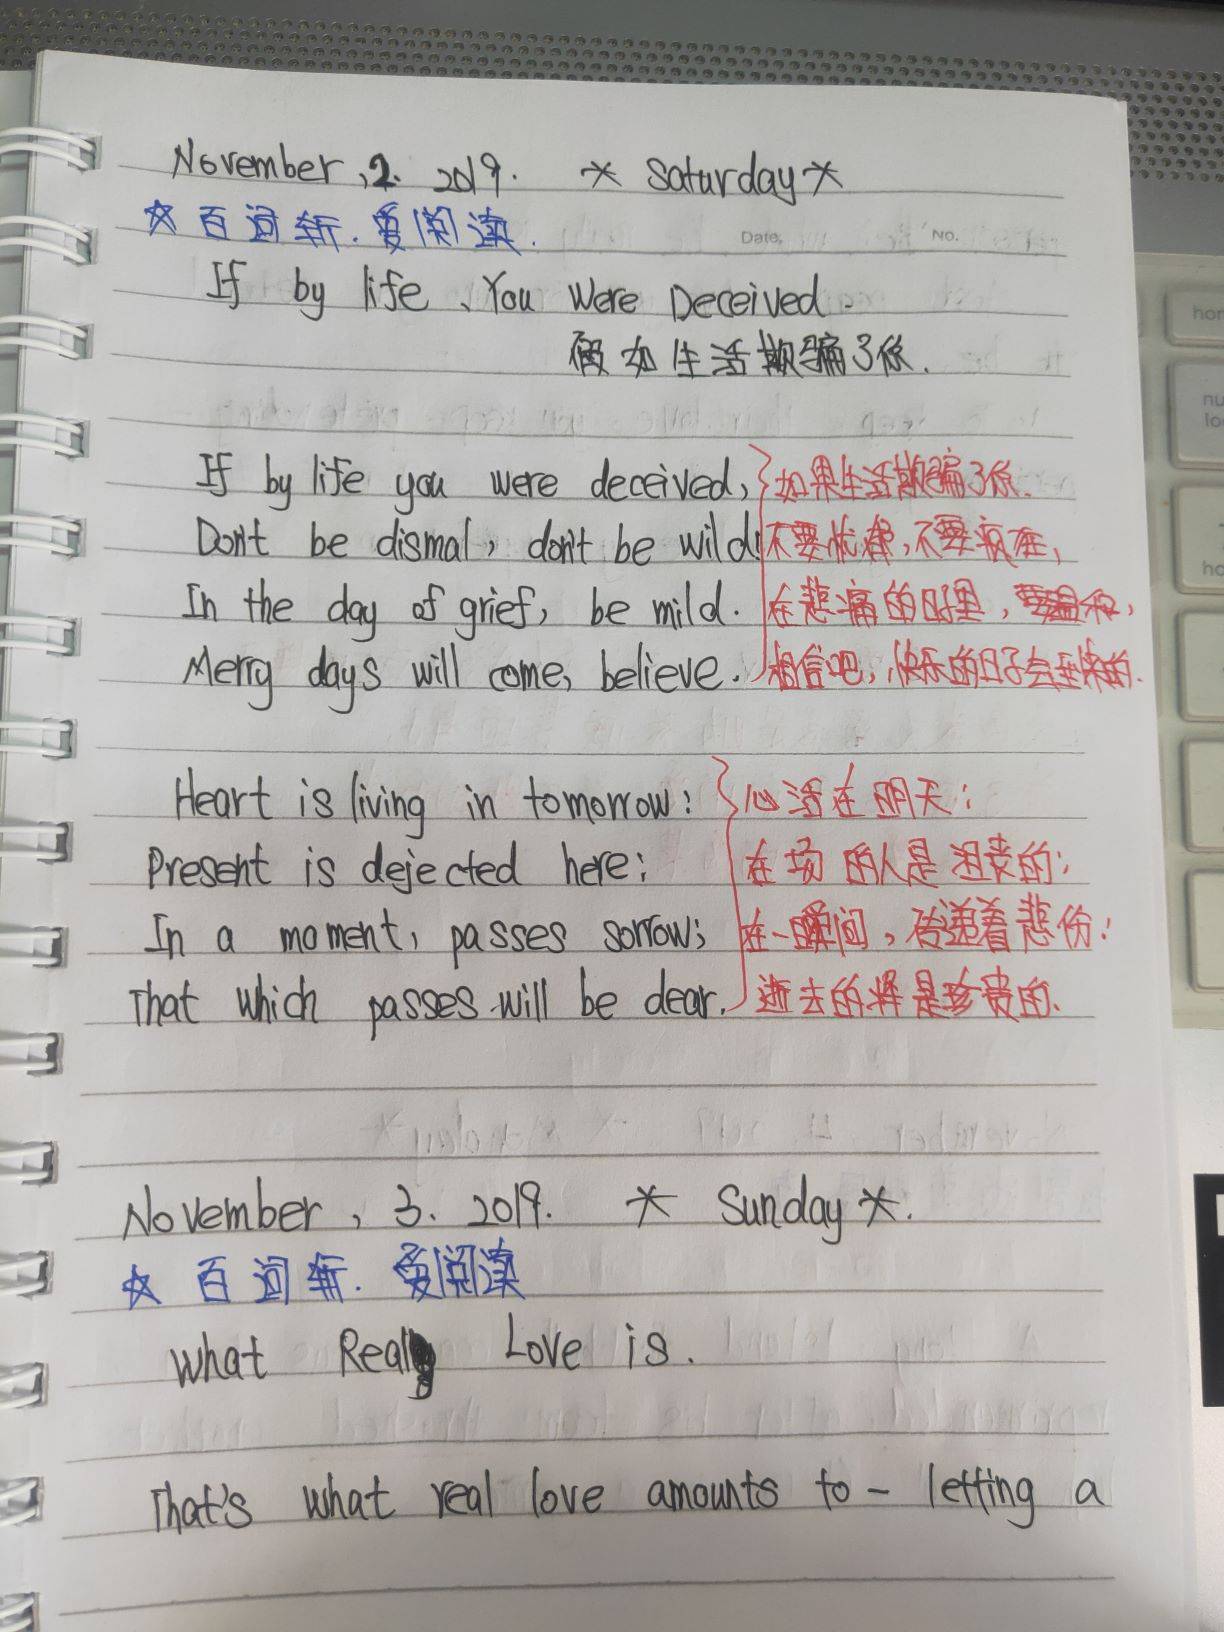 November,2. 2019. * Saturday *
☆ 百词斩.爱阅读.
Date. No.
If by life、You Were Deceived.
假如生活欺骗了你.
If by life you were deceived, 如果生活欺骗了你.
Don't be dismal, don't be wild! 不要忧郁,不要疯狂,
In the day of grief, be mild. 在悲痛的日子里,要温和,
Merry days will come, believe. 相信吧,快乐的日子会到来的.
Heart is living in tomorrow; 心活在明天;
Present is dejected here; 在场的人是沮丧的;
In a moment, passes sorrow; 在一瞬间,传递着悲伤;
That which passes will be dear. 逝去的将是珍贵的.
November, 3. 2019. * Sunday *.
☆ 百词斩. 爱阅读
What Real Love is.
That's what real love amounts to - letting a